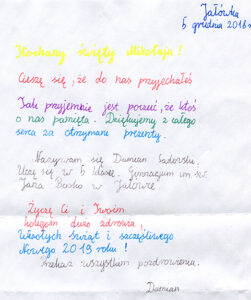 Jałówka
5 grudnia 2018
Kochany święty Mikołaju!
Cieszę się, że do nas przyjechałeś
Jak przyjemnie jest poczuć, że ktoś
o nas pamięta. Dziękujemy z całego
serca za otrzymane prezenty.
Nazywam się Damian
Uczę się w klasie, Gimnazjum im. św.
Jana Bosko w Jałówce
Życzę Ci i Twoim
kolegom dużo zdrowia,
Wesołych świąt i szczęśliwego
Nowego 2019 roku!
wszystkim pozdrowienia.
Damian